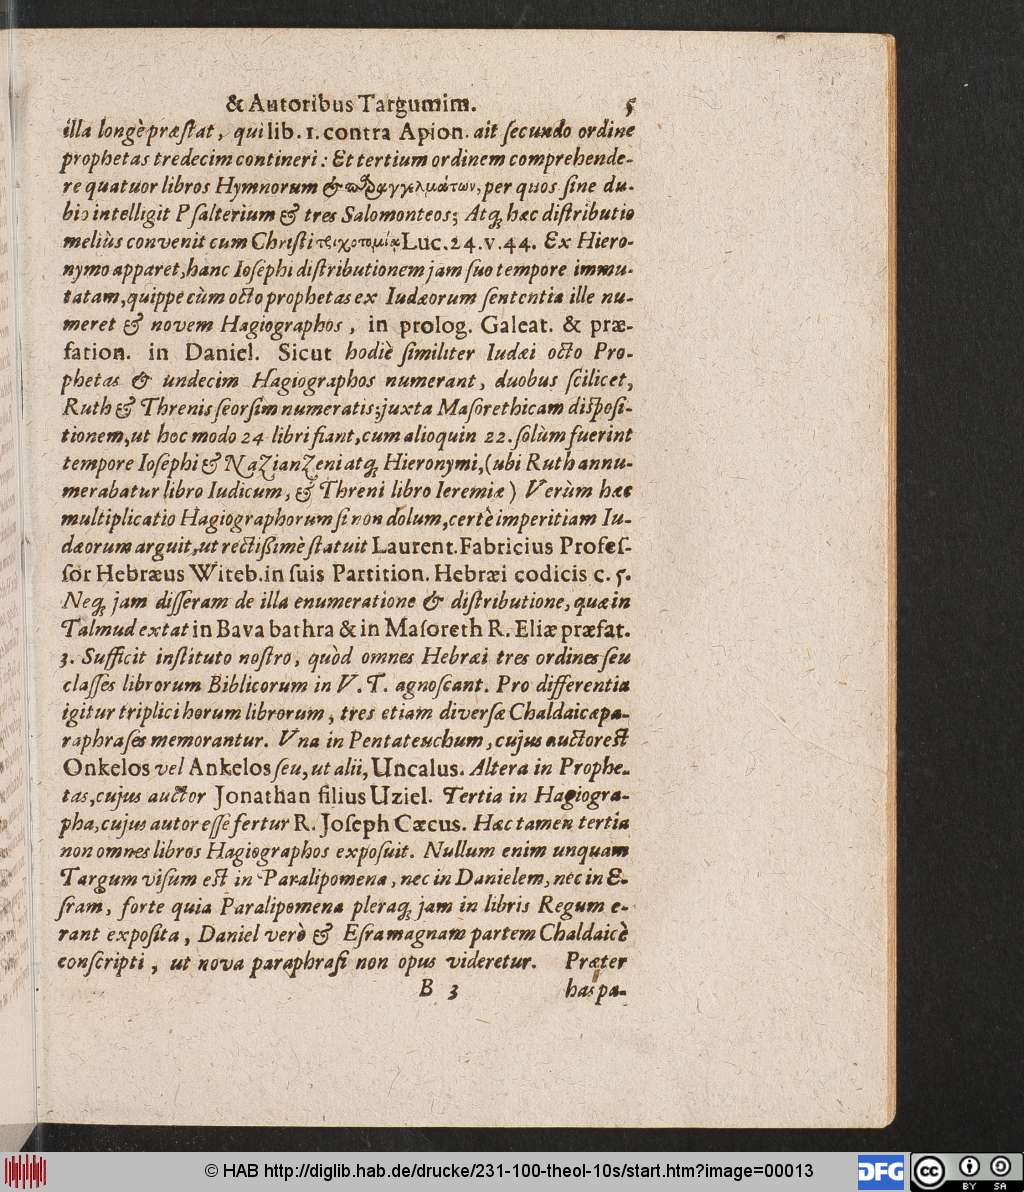 & Autoribus Targumim. 5
illa longè præſtat, qui lib. 1. contra Apion. ait ſecundo ordine
prophetas tredecim contineri: Et tertium ordinem comprehende-
re quatuor libros Hymnorum & παραγγελμάτων, per quos ſine du-
bio intelligit Pſalterium & tres Salomonteos; Atq; hæc diſtributio
meliùs convenit cum Chriſti τριχοτομίᾳ Luc. 24. v. 44. Ex Hiero-
nymo apparet, hanc Ioſephi diſtributionem jam ſuo tempore immu-
tatam, quippe cùm octo prophetas ex Iudæorum ſententia ille nu-
meret & novem Hagiographos, in prolog. Galeat. & præ-
fation. in Daniel. Sicut hodiè ſimiliter Iudæi octo Pro-
phetas & undecim Hagiographos numerant, duobus ſcilicet,
Ruth & Threnis ſeorſim numeratis; juxta Maſorethicam diſpoſi-
tionem, ut hoc modo 24 libri fiant, cum alioquin 22. ſolùm fuerint
tempore Ioſephi & Nazianzeni atq; Hieronymi, (ubi Ruth annu-
merabatur libro Iudicum, & Threni libro Ieremiæ) Verùm hæc
multiplicatio Hagiographorum ſi non dolum, certè imperitiam Iu-
dæorum arguit, ut rectißimè ſtatuit Laurent. Fabricius Profeſ-
ſor Hebræus Witeb. in ſuis Partition. Hebræi codicis c. 5.
Neq; jam diſſeram de illa enumeratione & diſtributione, quæ in
Talmud extat in Bava bathra & in Maſoreth R. Eliæ præfat.
3. Sufficit inſtituto noſtro, quòd omnes Hebræi tres ordines ſeu
claſſes librorum Biblicorum in V. T. agnoſcant. Pro differentia
igitur triplici horum librorum, tres etiam diverſæ Chaldaicæ pa-
raphraſes memorantur. Vna in Pentateuchum, cujus auctor eſt
Onkelos vel Ankelos ſeu, ut alii, Uncalus. Altera in Prophe-
tas, cujus auctor Jonathan filius Uziel. Tertia in Hagiogra-
pha, cujus autor eſſe fertur R. Joſeph Cæcus. Hæc tamen tertia
non omnes libros Hagiographos expoſuit. Nullum enim unquam
Targum viſum eſt in Paralipomena, nec in Danielem, nec in E-
ſram, forte quia Paralipomena pleraq; jam in libris Regum e-
rant expoſita, Daniel verò & Eſra magnam partem Chaldaicè
conſcripti, ut nova paraphraſi non opus videretur. Præter
B 3 has pa-
© HAB http://diglib.hab.de/drucke/231-100-theol-10s/start.htm?image=00013
DFG
cc BY SA